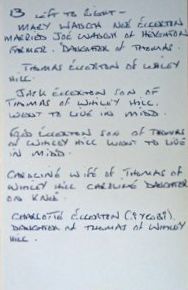 B LEFT TO RIGHT -
MARY WAUGH NEÉ ECCERTON
MARRIED JOE WAUGH OF HEIGHTON
FARMER. DAUGHTER OF THOMAS.
THOMAS ECCERTON OF WHILEY
HILL.
JACK ECCERTON SON OF
THOMAS OF WHILEY HILL.
WENT TO LIVE IN MIDD.
FRED ECCERTON SON OF THOMAS
OF WHILEY HILL WENT TO LIVE
IN MIDD.
CAROLINE WIFE OF THOMAS OF
WHILEY HILL CAROLINE DAUGHTER
ON KNEE.
CHARLOTTE ECCERTON
DAUGHTER OF THOMAS OF WHILEY
HILL.